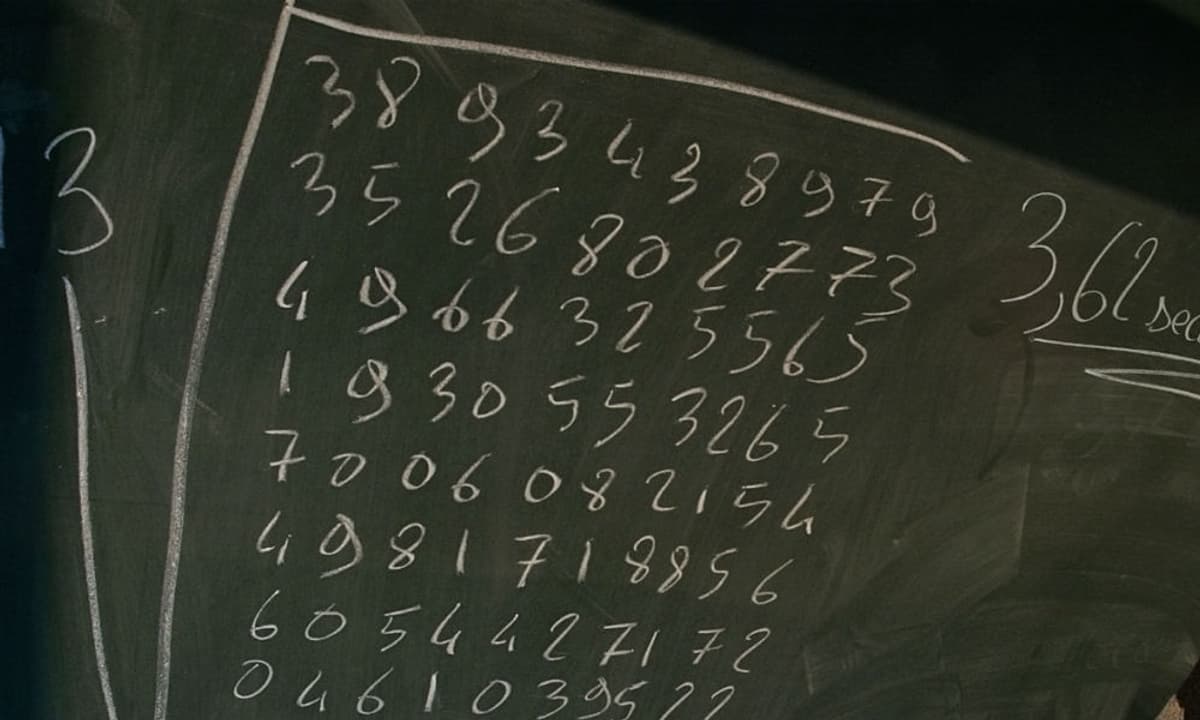 3
38 93 4 3 8 9 7 9
3 5 2 6 8 0 2 7 7 3
4 9 6 6 3 2 5 5 6 5
1 9 3 0 5 5 3 2 6 5
7 0 0 6 0 8 2 1 5 4
4 9 8 1 7 1 8 8 5 6
6 0 5 4 4 2 7 1 7 2
0 4 6 1 0 3 9 5 2 2
3,62 sec